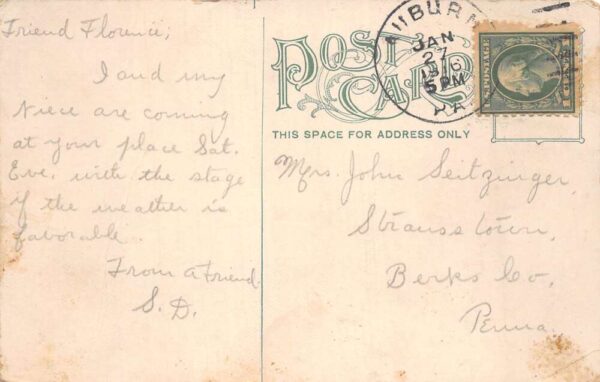 Friend Florence;
I and my
Niece are coming
at your place Sat.
Eve. with the stage
if the weather is
favorable
From a Friend.
S. D.
POST
CARD
THIS SPACE FOR ADDRESS ONLY
BURN
JAN
27
1916
5 PM
PA
POSTAGE
Mrs. John Seitzinger,
Strausstown,
Berks Co,
Penna.